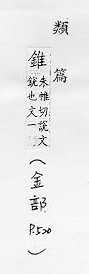 類篇
錐
朱惟切說文
銳也文一
(金部 P.520)